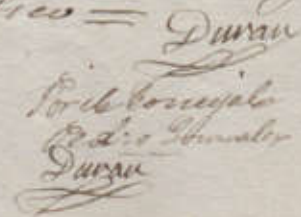 Duran
Por el Concejal
Pedro Gonzalez
Duran